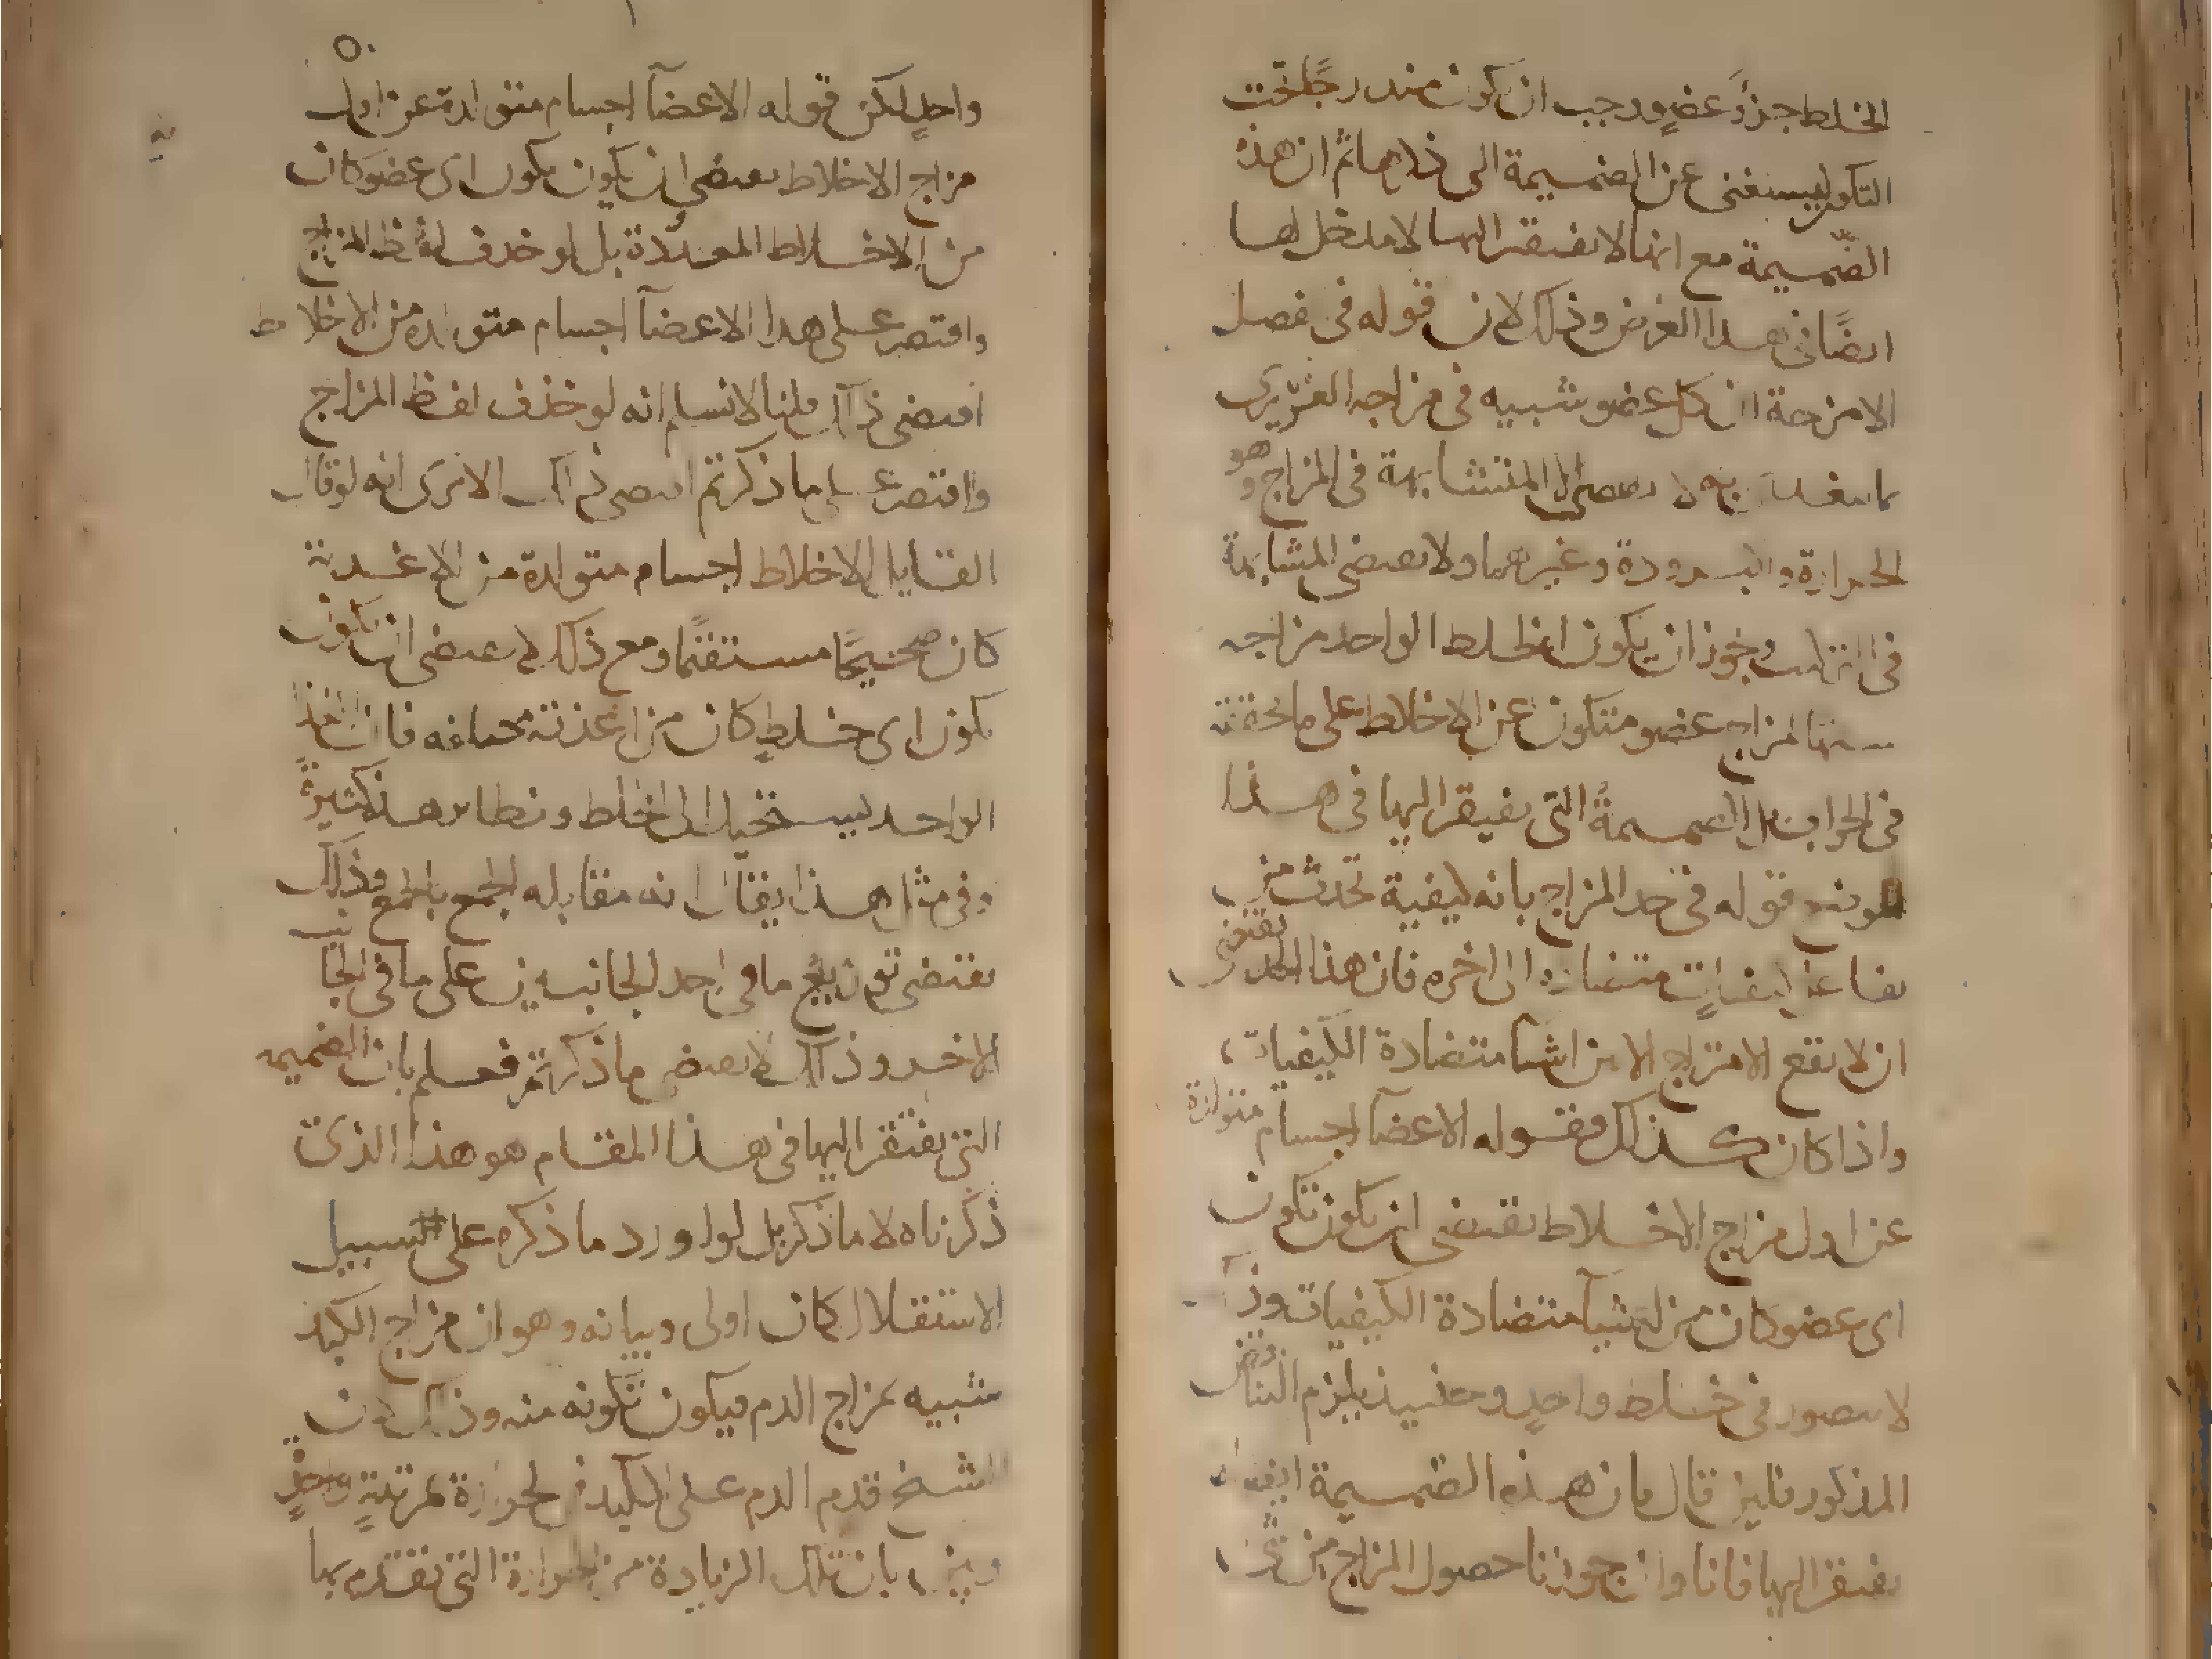 الخلط جزؤ عضو وجب ان يكون مندرجًا تحت
التكون ليستغنى عن الضميمة الى ذكرها ثم ان هذه
الضّميمة مع انها لا يفتقر اليها لا مدخل لها
ايضًا فى هذا الغرض وذلك لان قوله فى فصل
الامزجة ان كل عضو شبيه فى مزاجه الغريزى
بما يتغذى به لا يقتضى الا المتشابهة فى المزاج وهو
الحرارة والبرودة وغيرهما ولا يقتضى المشابهة
فى التركيب ويجوز ان يكون الخلط الواحد مزاجه
شبيها لمزاج عضو متكون عن الاخلاط على ما تحققته
فى الجواب بل الضميمة التى يفتقر اليها فى هذا
الموضع قوله فى حد المزاج بانه كيفية تحدث من
تفاعل كيفيات متضادة الى اخره فان هذا الحد يقتضى
ان لا يقع الامتزاج الا بين اشيا متضادة الكيفيات
واذا كان كذلك فقوله الاعضآ اجسام متولدة
عن اول مزاج الاخلاط يقتضى ان يكون تكون
اى عضو كان من اشيآ متضادة الكيفيات وذلك
لا يتصور فى خلط واحد وحينئذ يلزم التناقض
المذكور فليس قال فان هذه الضميمة ايضا لا
يفتقر اليها فانا وان جوزنا حصول المزاج من شى
واحدٍ لكن قوله الاعضآ اجسام متولدة عن اول
مزاج الاخلاط يقتضى ان يكون تكون اى عضو كان
من الاخلاط المعدودة بل لو حذف لفظ المزاج
واقتصر على هذا الاعضآ اجسام متولدة من الاخلاط
اقتضى ذلك قلنا لا نسلم انه لو حذف لفظ المزاج
واقتصر على ما ذكرتم اقتضى ذلك الا ترى انه لو قال
القايل الاخلاط اجسام متولدة من الاغذية
كان صحيحًا مستقيمًا ومع ذلك لا يقتضى ان يكون
تكون اى خلطٍ كان من اغذية مختلفه فان الغذا
الواحد ليستحيل الى الخلط ونظاير هذا كثيرة
وفى مثل هذا يقال انه مقابلة الجمع بالجمع وذلك
يقتضى توزيع ما فى احد الجانبين على ما فى الجانب
الاخر وذلك لا يقتضى ما ذكرتم فعلم بان الضميمه
التى يفتقر اليها فى هذا المقام هو هذا الذى
ذكرناه لا ما ذكر بل لو اورد ما ذكره على سبيل
الاستقلال كان اولى وبيانه وهو ان مزاج الكبد
شبيه بمزاج الدم فيكون تكونه منه وذلك لان
الشيخ قدم الدم على الكبد فى الحرارة بمرتبةٍ واحدةٍ
وبين بان تلك الزيادة من الحرارة التى تقدم بها